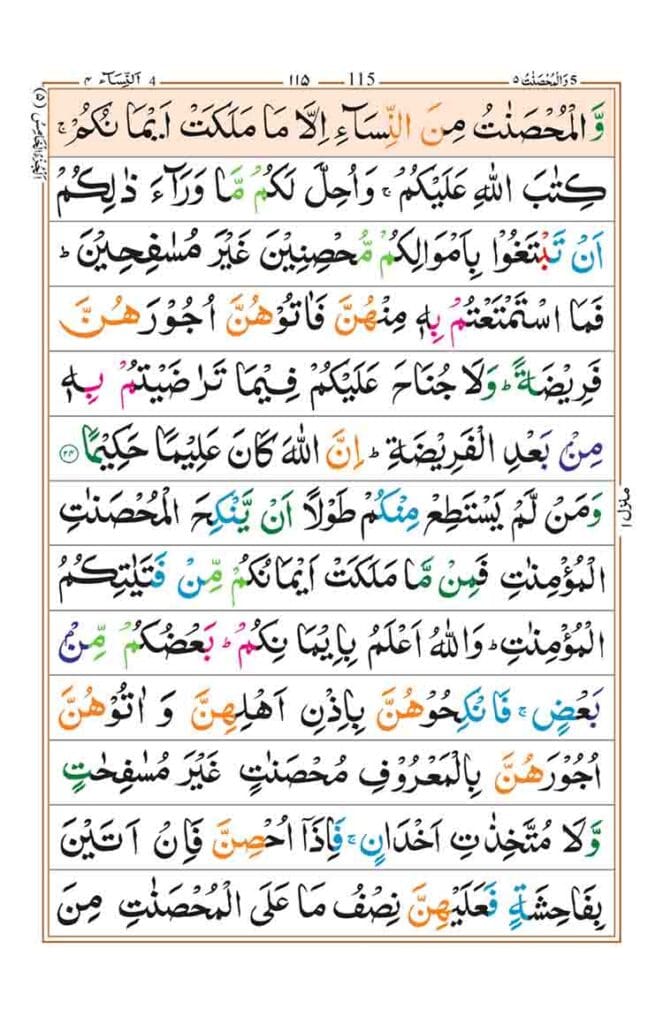 اَلنِّسَآء ٤ 4 ١١٥ 115 وَالْمُحْصَنٰتُ ٥ 5
اَلْجُزْءُ الْخَامِسُ (٥)
وَّالْمُحْصَنٰتُ مِنَ النِّسَآءِ اِلَّا مَا مَلَكَتْ اَيْمَانُكُمْ ۚ
كِتٰبَ اللّٰهِ عَلَيْكُمْ ۚ وَاُحِلَّ لَكُمْ مَّا وَرَآءَ ذٰلِكُمْ
اَنْ تَبْتَغُوْا بِاَمْوَالِكُمْ مُّحْصِنِيْنَ غَيْرَ مُسٰفِحِيْنَ ؕ
فَمَا اسْتَمْتَعْتُمْ بِهٖ مِنْهُنَّ فَاٰتُوْهُنَّ اُجُوْرَهُنَّ
فَرِيْضَةً ؕ وَلَا جُنَاحَ عَلَيْكُمْ فِيْمَا تَرَاضَيْتُمْ بِهٖ
مِنْۢ بَعْدِ الْفَرِيْضَةِ ؕ اِنَّ اللّٰهَ كَانَ عَلِيْمًا حَكِيْمًا ۝٢٤
وَمَنْ لَّمْ يَسْتَطِعْ مِنْكُمْ طَوْلًا اَنْ يَّنْكِحَ الْمُحْصَنٰتِ
الْمُؤْمِنٰتِ فَمِنْ مَّا مَلَكَتْ اَيْمَانُكُمْ مِّنْ فَتَيٰتِكُمُ
الْمُؤْمِنٰتِ ؕ وَاللّٰهُ اَعْلَمُ بِاِيْمَانِكُمْ ؕ بَعْضُكُمْ مِّنْۢ
بَعْضٍ ۚ فَانْكِحُوْهُنَّ بِاِذْنِ اَهْلِهِنَّ وَاٰتُوْهُنَّ
اُجُوْرَهُنَّ بِالْمَعْرُوْفِ مُحْصَنٰتٍ غَيْرَ مُسٰفِحٰتٍ
وَّلَا مُتَّخِذٰتِ اَخْدَانٍ ۚ فَاِذَاۤ اُحْصِنَّ فَاِنْ اَتَيْنَ
بِفَاحِشَةٍ فَعَلَيْهِنَّ نِصْفُ مَا عَلَى الْمُحْصَنٰتِ مِنَ
منزل ١